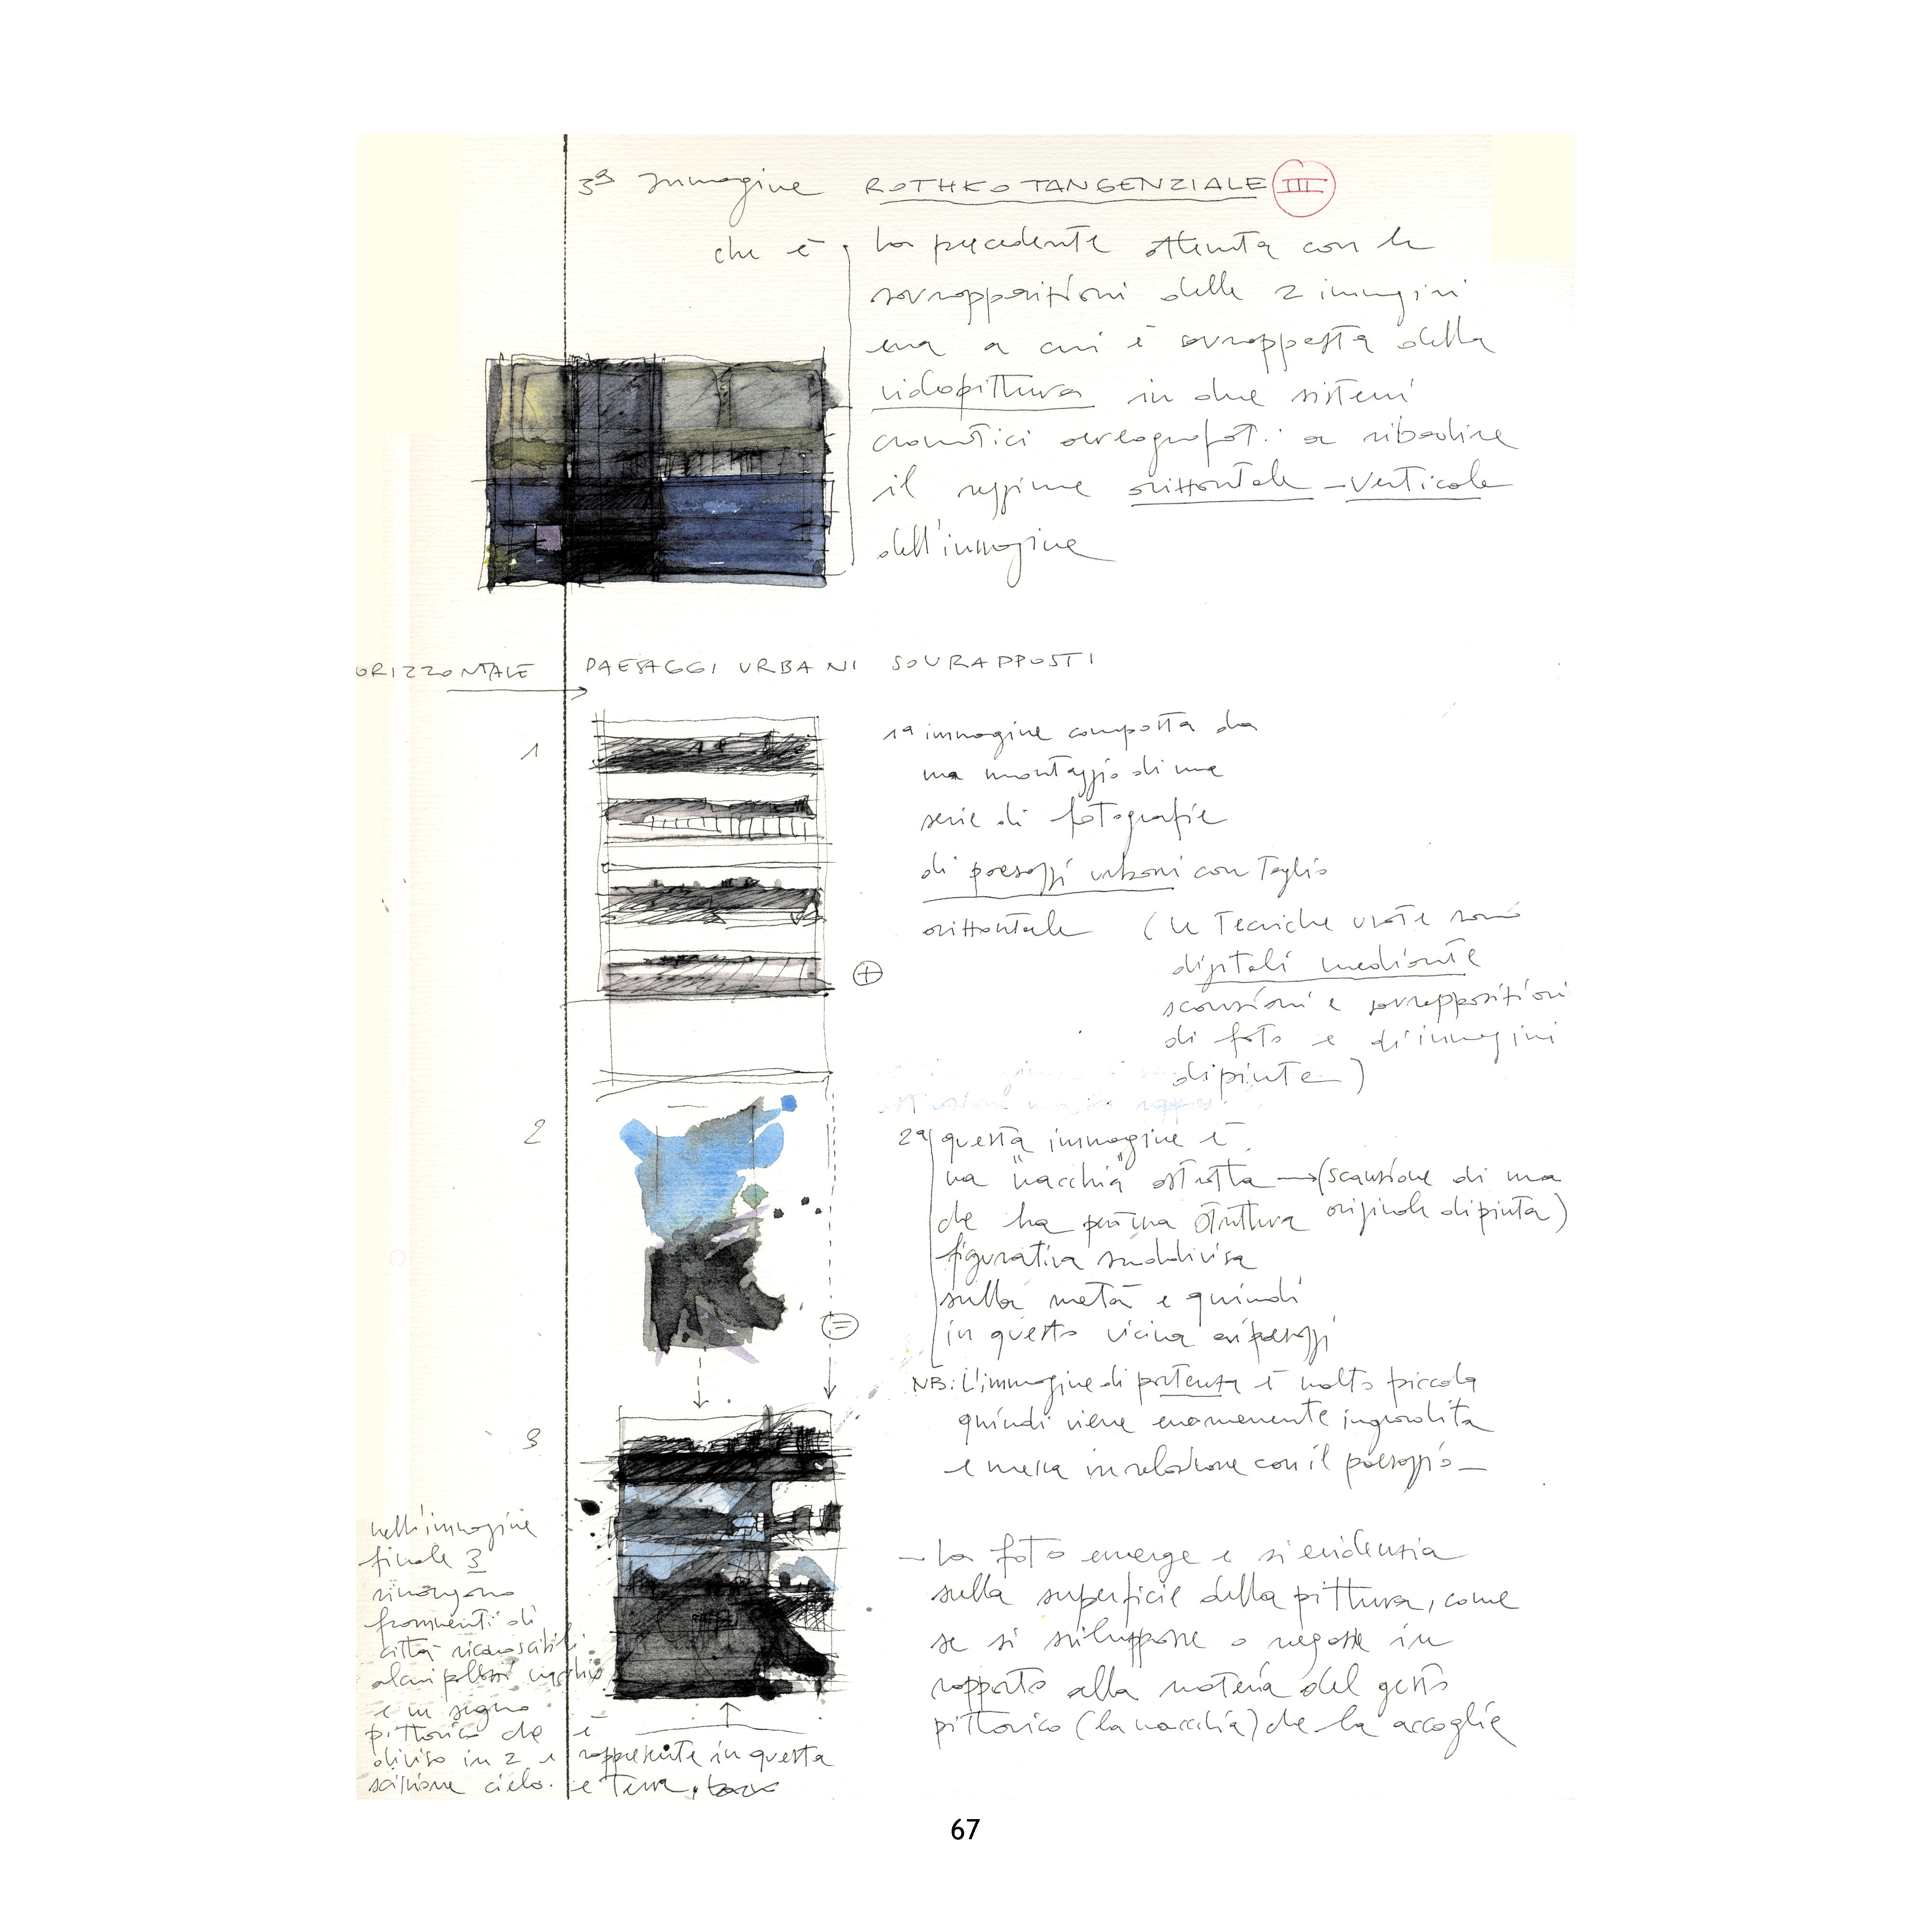 3ª Immagine ROTHKO TANGENZIALE III
che è la precedente ottenuta con le
sovrapposizioni delle 2 immagini
ma a cui è sovrapposta della
videopittura in due sistemi
cromatici a ribadire
il regime orizzontale - verticale
dell'immagine
ORIZZONTALE PAESAGGI URBANI SOVRAPPOSTI
1
1ª immagine composta da
un montaggio di una
serie di fotografie
di paesaggi urbani con taglio
orizzontale (le tecniche usate sono
digitali mediante
scansioni e sovrapposizioni
di foto e di immagini
dipinte)
+
2
2ª questa immagine è
una "macchia" astratta → (scansione di una
che ha per una struttura originale dipinta)
figurativa suddivisa
sulla metà e quindi
in questo vicina ai paesaggi
=
NB: L'immagine di partenza è molto piccola
quindi viene enormemente ingrandita
e messa in relazione con il paesaggio -
3
- La foto emerge e si evidenzia
sulla superficie della pittura, come
se si sviluppasse o negasse in
rapporto alla materia del gesto
pittorico (la macchia) che la accoglie
nell'immagine
finale 3
rimangono
frammenti di
città riconoscibili
alcuni palazzi
e un segno
pittorico che è
diviso in 2 e rappresenta in questa
scissione cielo e terra
67